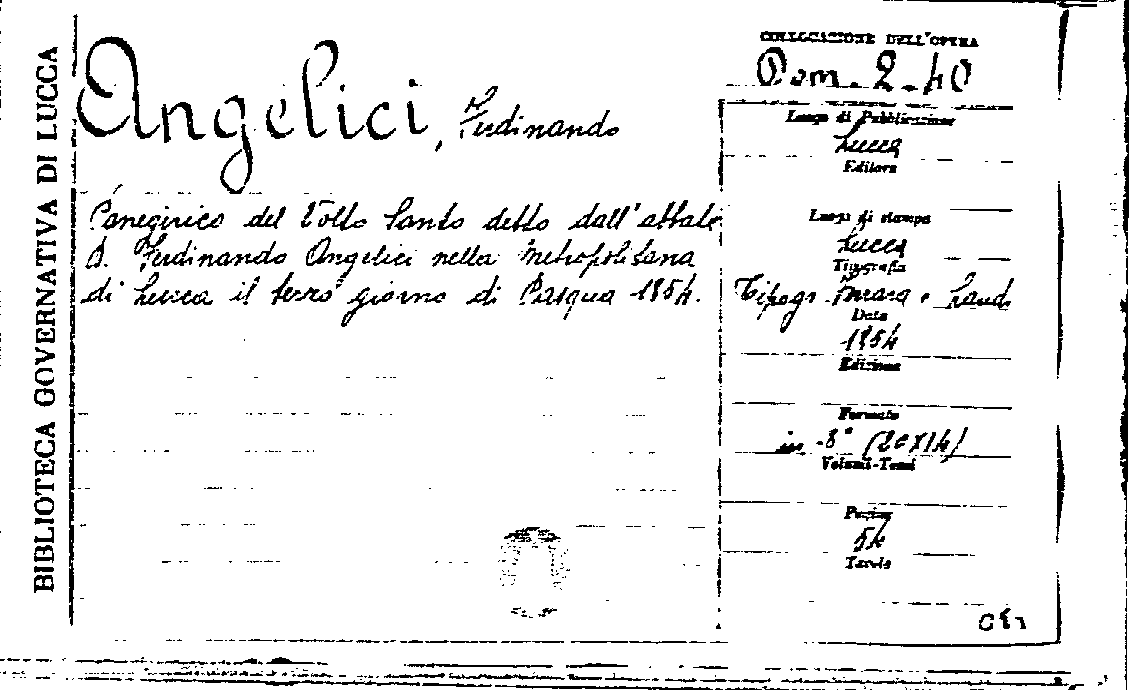 BIBLIOTECA GOVERNATIVA DI LUCCA
Angelici, Ferdinando
Panegirico del Volto Santo detto dall'abbate
D. Ferdinando Angelici nella Metropolitana
di Lucca il terzo giorno di Pasqua 1854.
COLLOCAZIONE DELL'OPERA
2-40
Luogo di Pubblicazione
Lucca
Editore
Luogo di stampa
Lucca
Tipografia
Tipogr.
Data
1854
Edizione
Formato
in-8° (20X14)
Volumi-Tomi
Pagine
54
Tavole